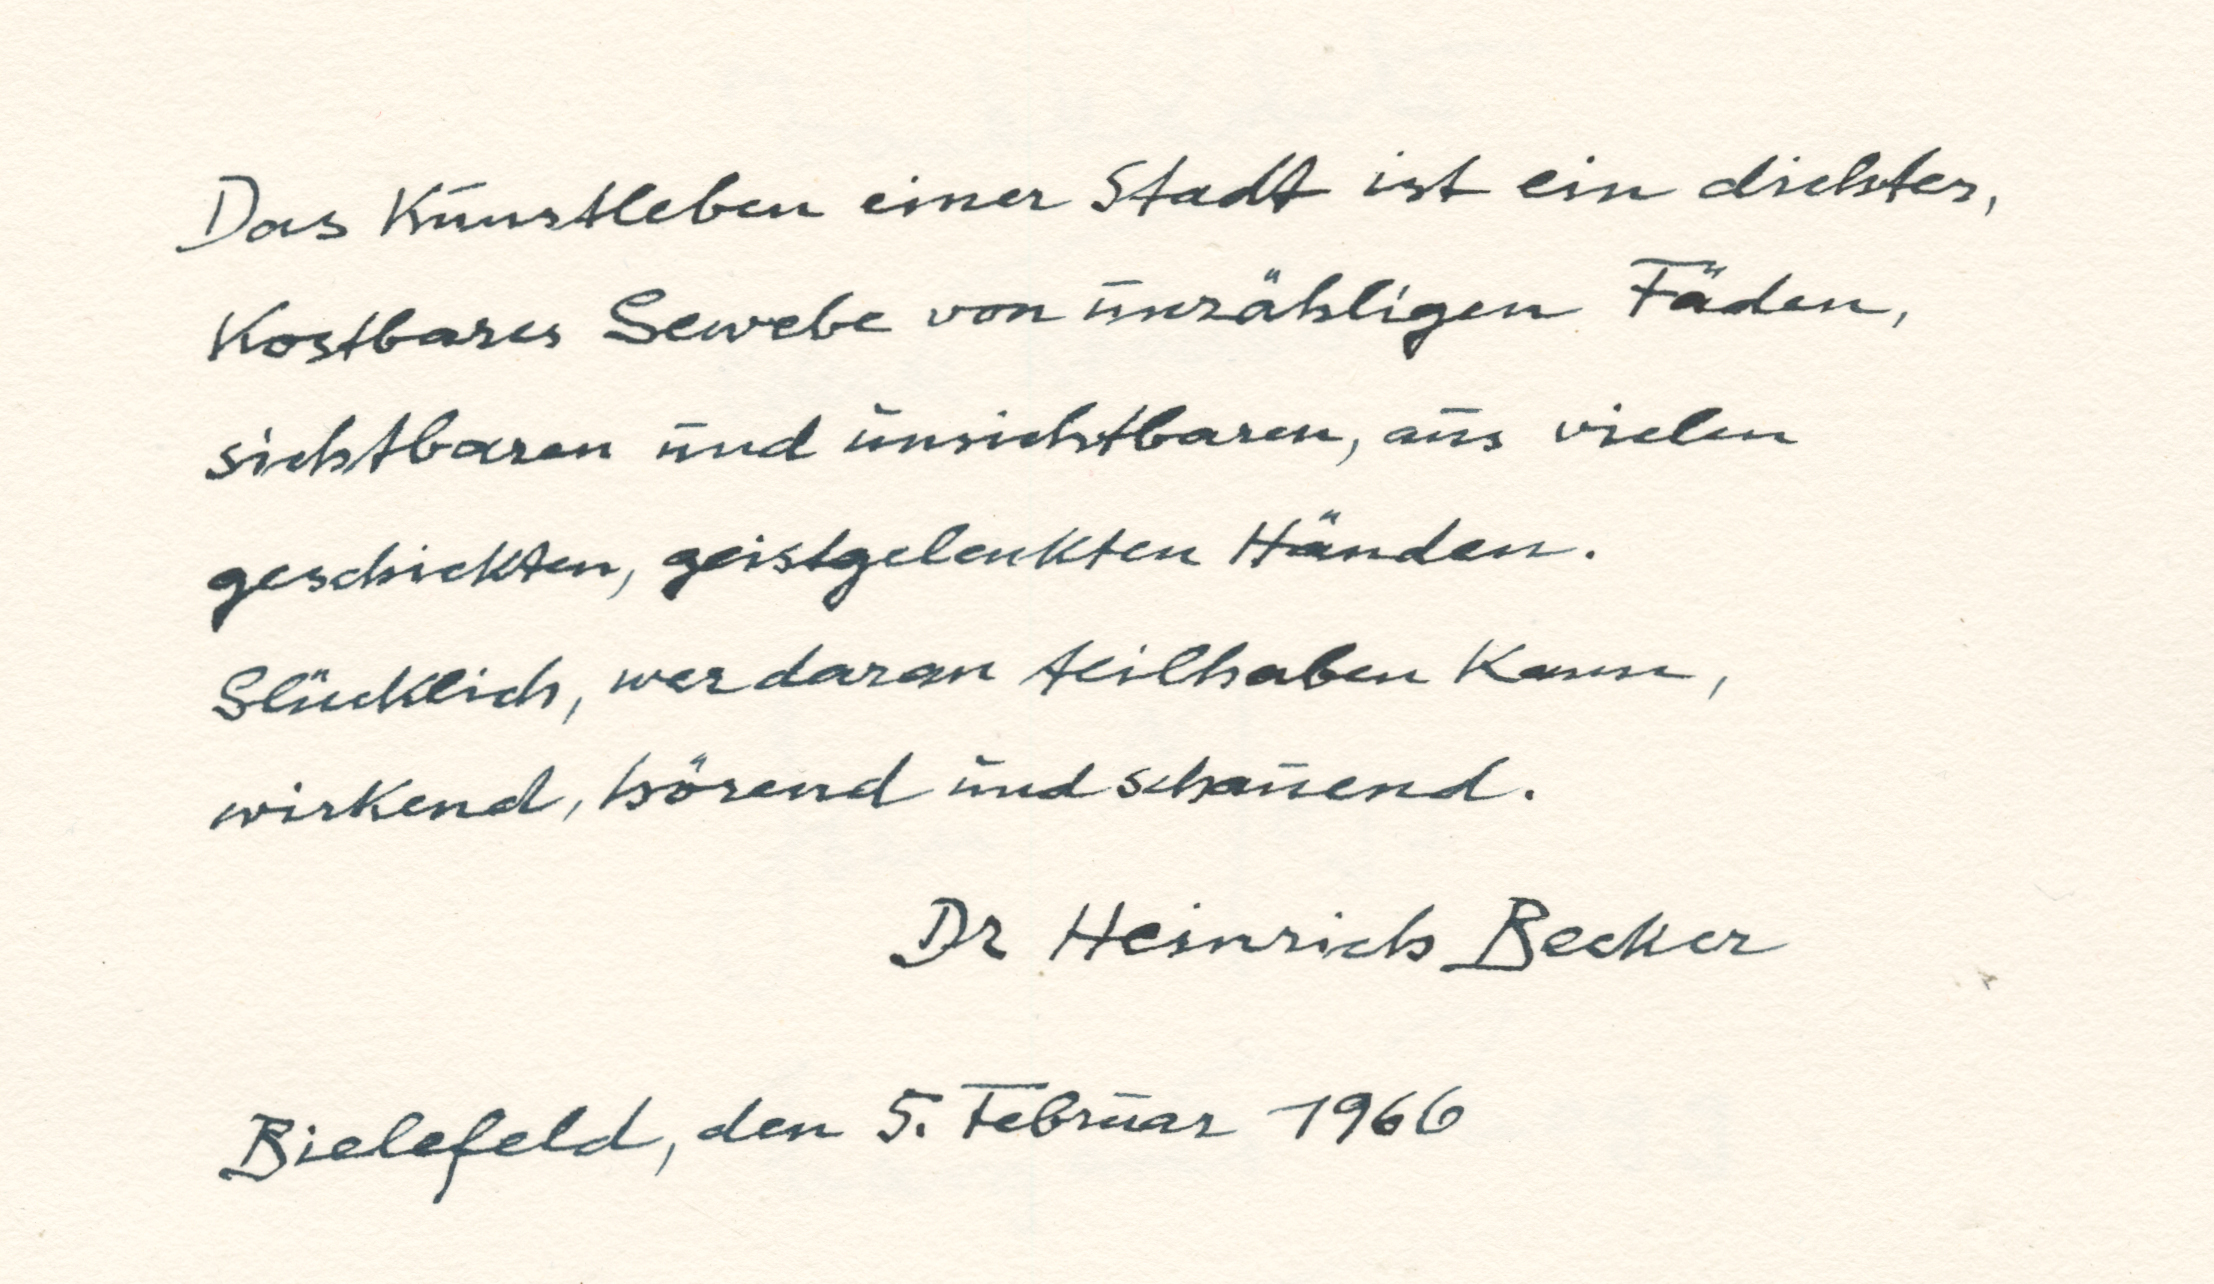 Das Kunstleben einer Stadt ist ein dichtes,
kostbares Gewebe von unzähligen Fäden,
sichtbaren und unsichtbaren, aus vielen
geschickten, geistgelenkten Händen.
Glücklich, wer daran teilhaben kann,
wirkend, hörend und schauend.
Dr Heinrich Becker
Bielefeld, den 5. Februar 1966